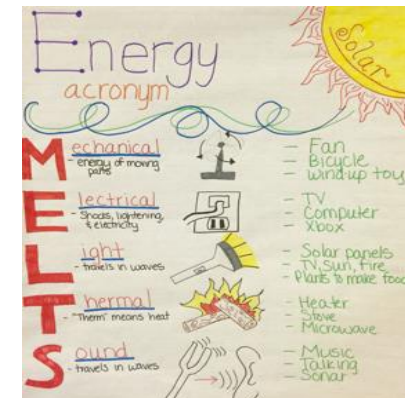 Energy
Solar
acronym
Mechanical
- energy of moving
parts
- Fan
- Bicycle
- wind-up toy
Electrical
- Shocks, lightening,
& electricity
- TV
- Computer
- Xbox
Light
- travels in waves
- Solar panels
- TV, sun, fire
- Plants to make food
Thermal
- "Therm" means heat
- Heater
- Stove
- Microwave
Sound
- travels in waves
- Music
- Talking
- Sonar